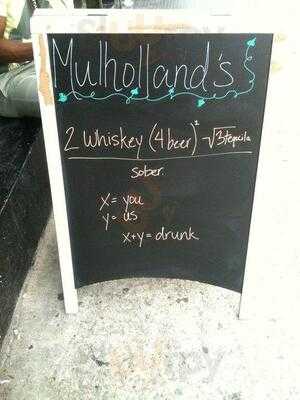 Mulholland's
2 Whiskey (4 beer)² -√3 tequila
sober.
x = you
y = us
x+y = drunk